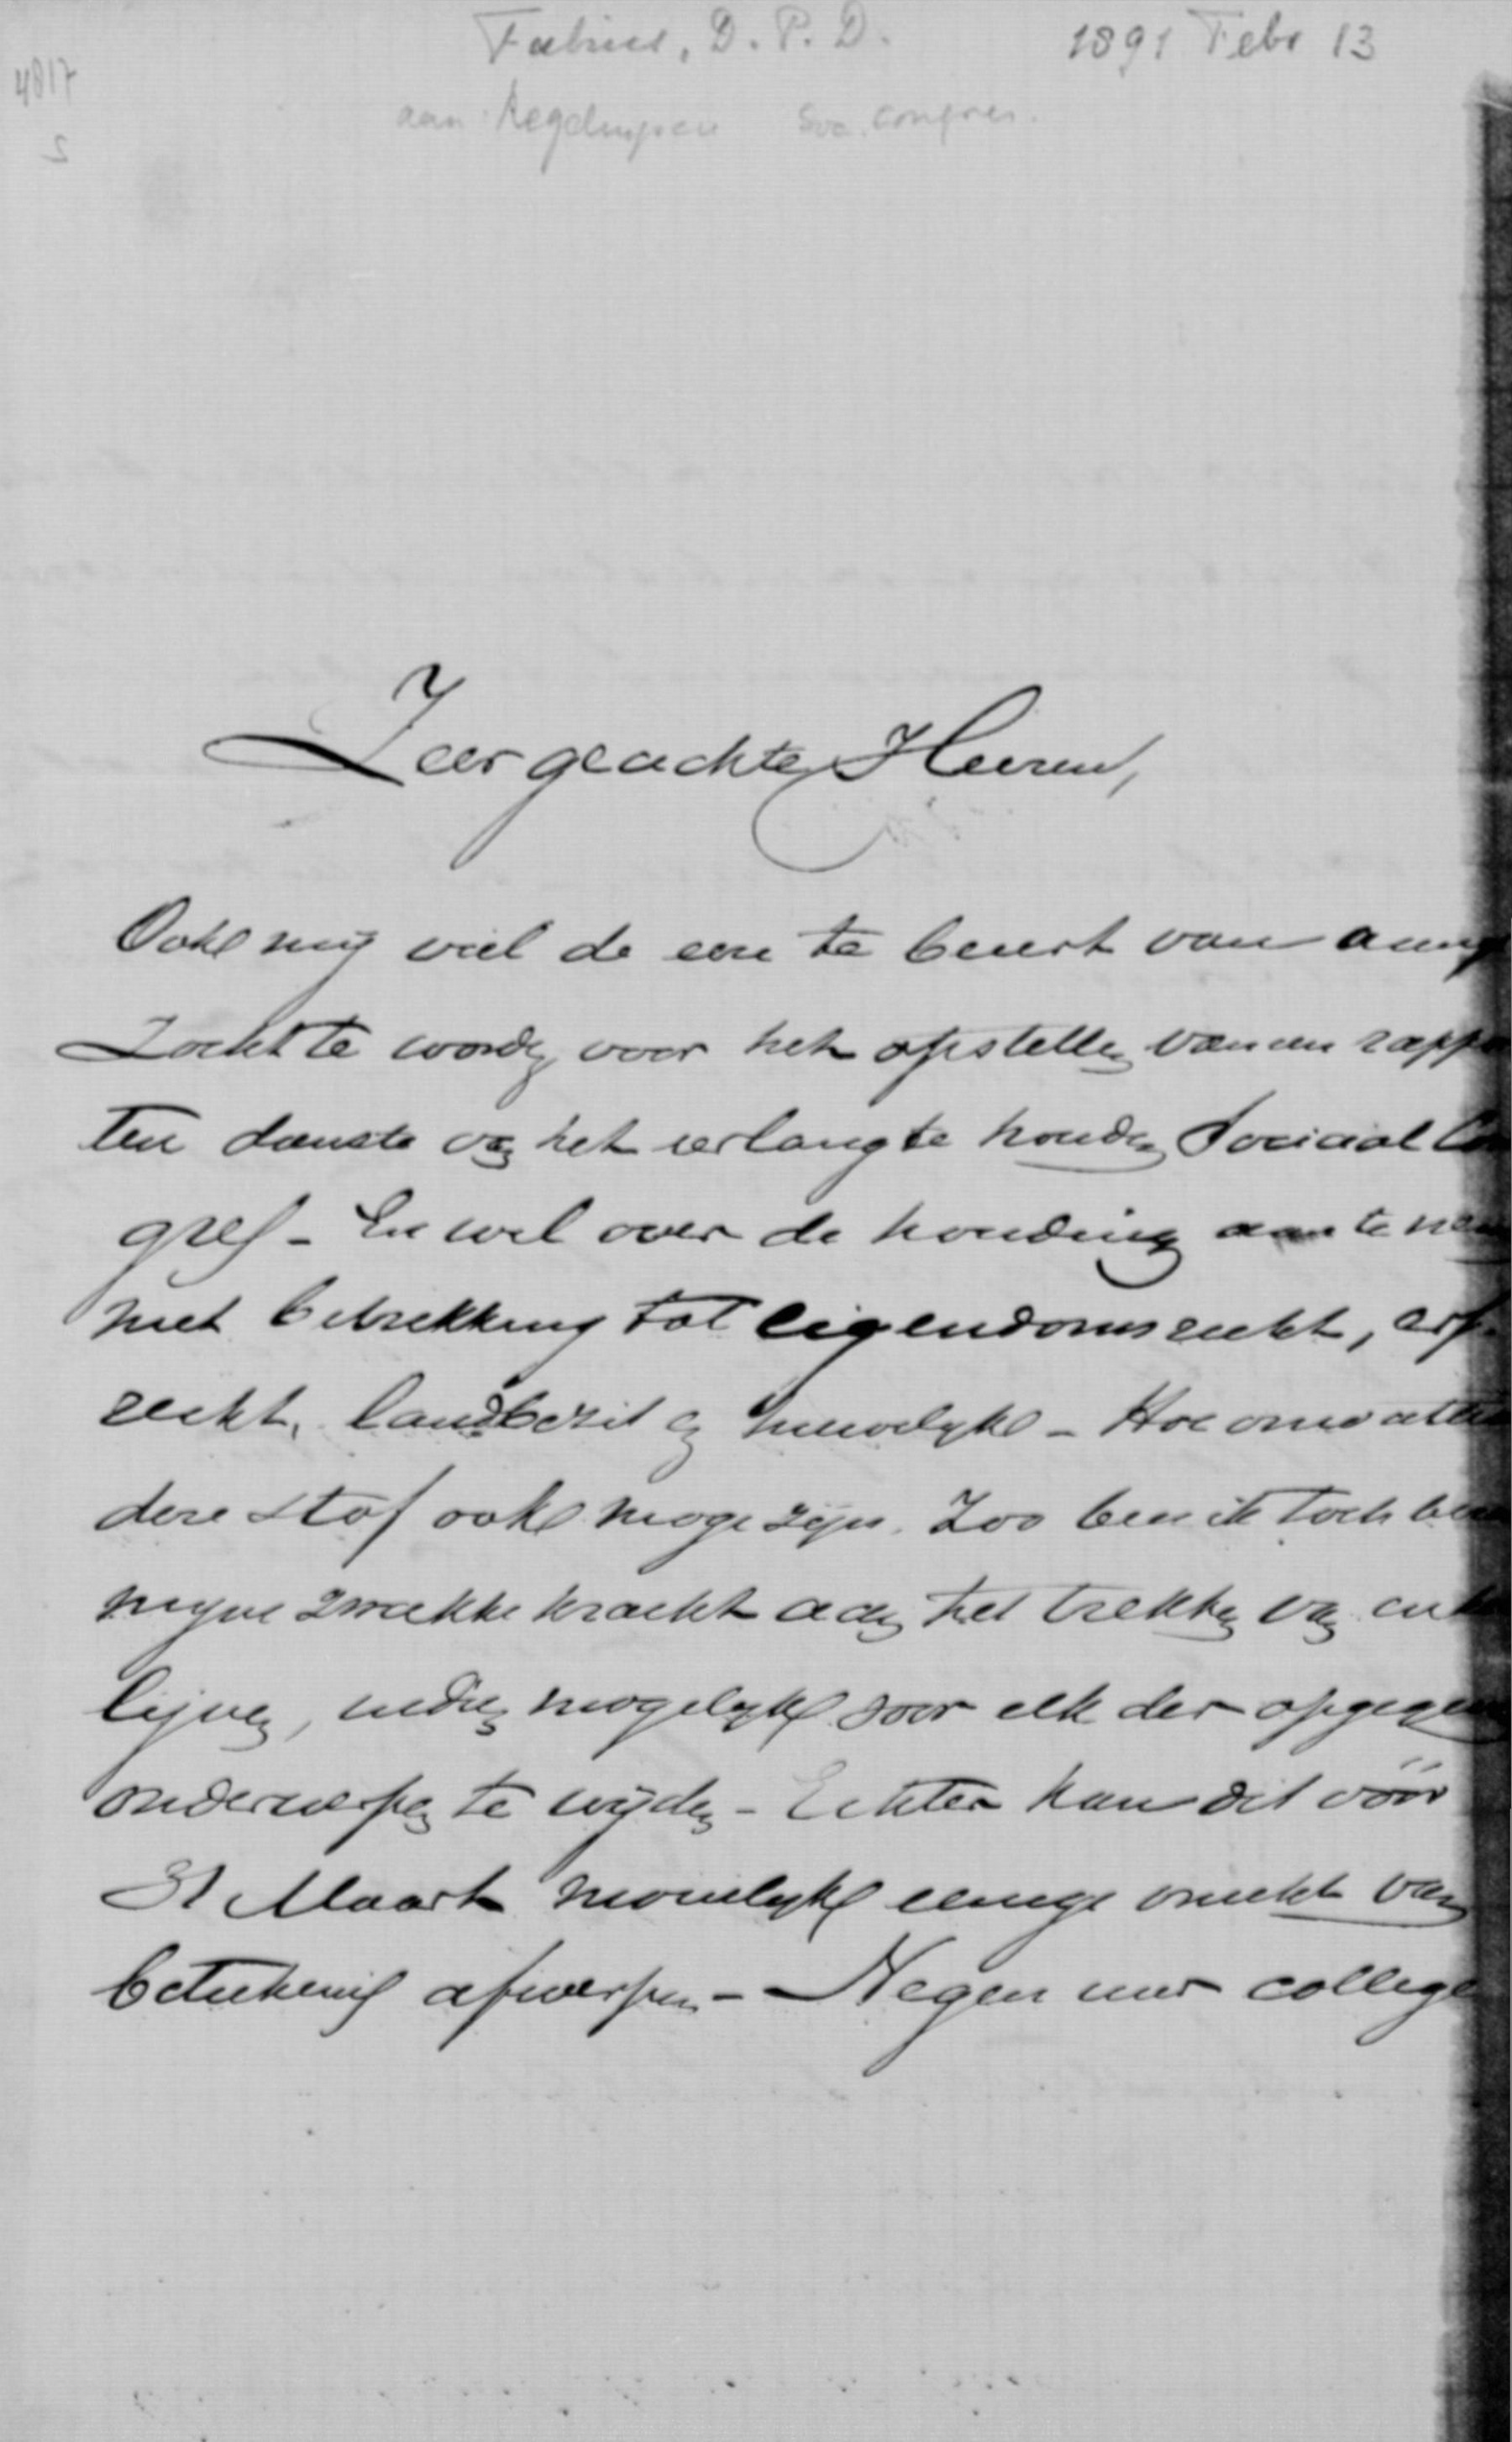 Fabius, D. P. D. 1891 Febr 13
4817
5
aan Regelings soc. congres.
Zeer geachte Heeren,
Ook mij viel de eere te beurt van aang
zocht te worden voor het opstellen van een rapp
ten dienste van het eerlang te houden Sociaal Con
gres - En wel over de houding aan te nem
met betrekking tot eigendomsrecht, erf-
recht, landbezit en huwelijk - Hoe omvatten
deze stof ook moge zijn. Zoo ben ik toch ber
mijne zwakke kracht aan het trekken van enk
lijnen, indien mogelijk voor elk der opgegeven
onderwerpen te wijden - Echter kan dit vóór
31 Maart moeielijk eenige vrucht van
beteekenis afwerpen - Negen uur college